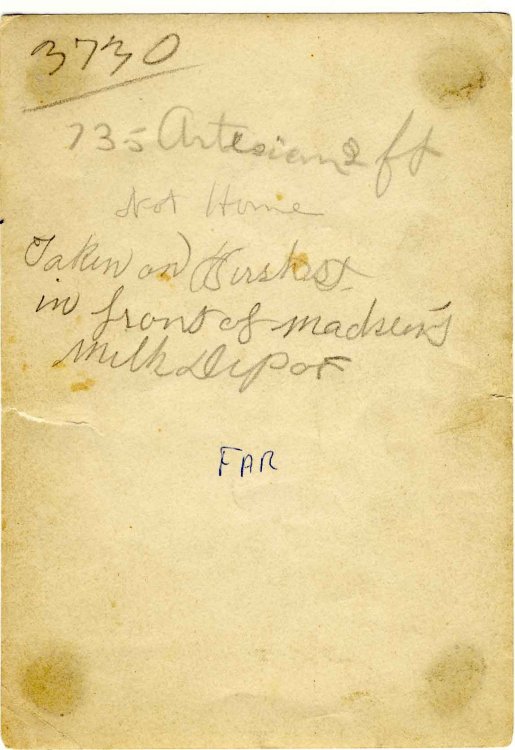 3730
735 Artesian
Not Home
Taken on
in front of Madsen's
Milk Depot
FAR